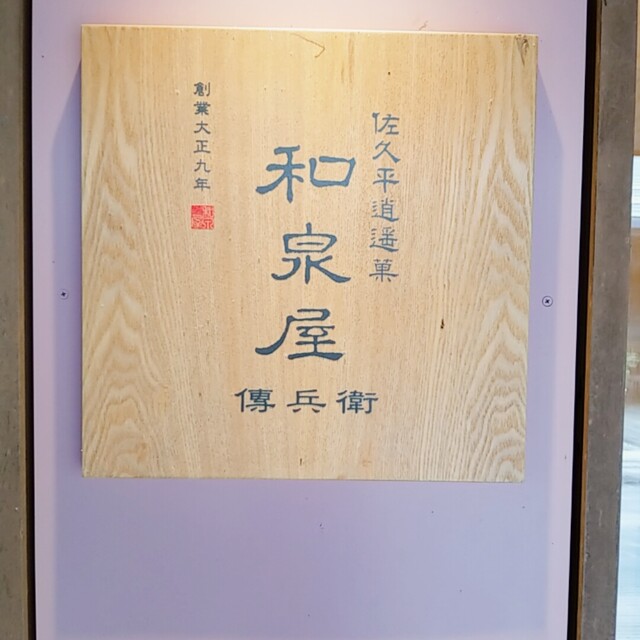 佐久平逍遥菓
和泉屋
傳兵衛
創業大正九年